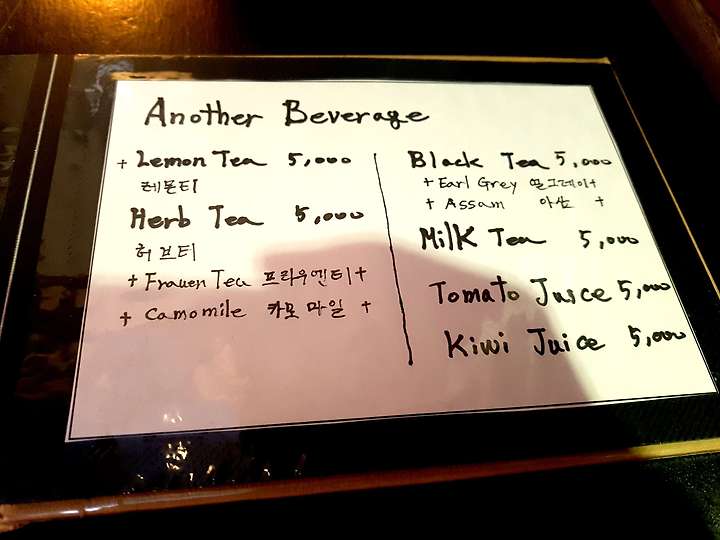 Another Beverage
+ Lemon Tea 5,000
레몬티
Herb Tea 5,000
허브티
+ Frauen Tea 프라우엔티 +
+ Camomile 카모마일 +
Black Tea 5,000
+ Earl Grey 얼그레이 +
+ Assam 아삼 +
Milk Tea 5,000
Tomato Juice 5,000
Kiwi Juice 5,000